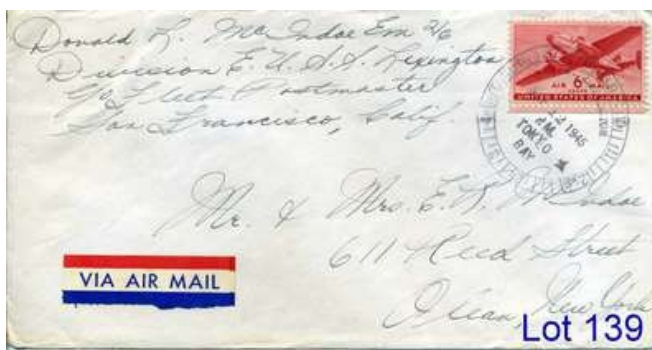 Donald L. McIndoe Em 2/c
Division E. U.S.S. Lexington
c/o Fleet Postmaster
San Francisco, Calif.
AIR 6¢ MAIL
UNITED STATES OF AMERICA
1945
TOKYO
BAY
Mr. & Mrs. E. R. McIndoe
611 Reed Street
Olean, New York
VIA AIR MAIL
Lot 139